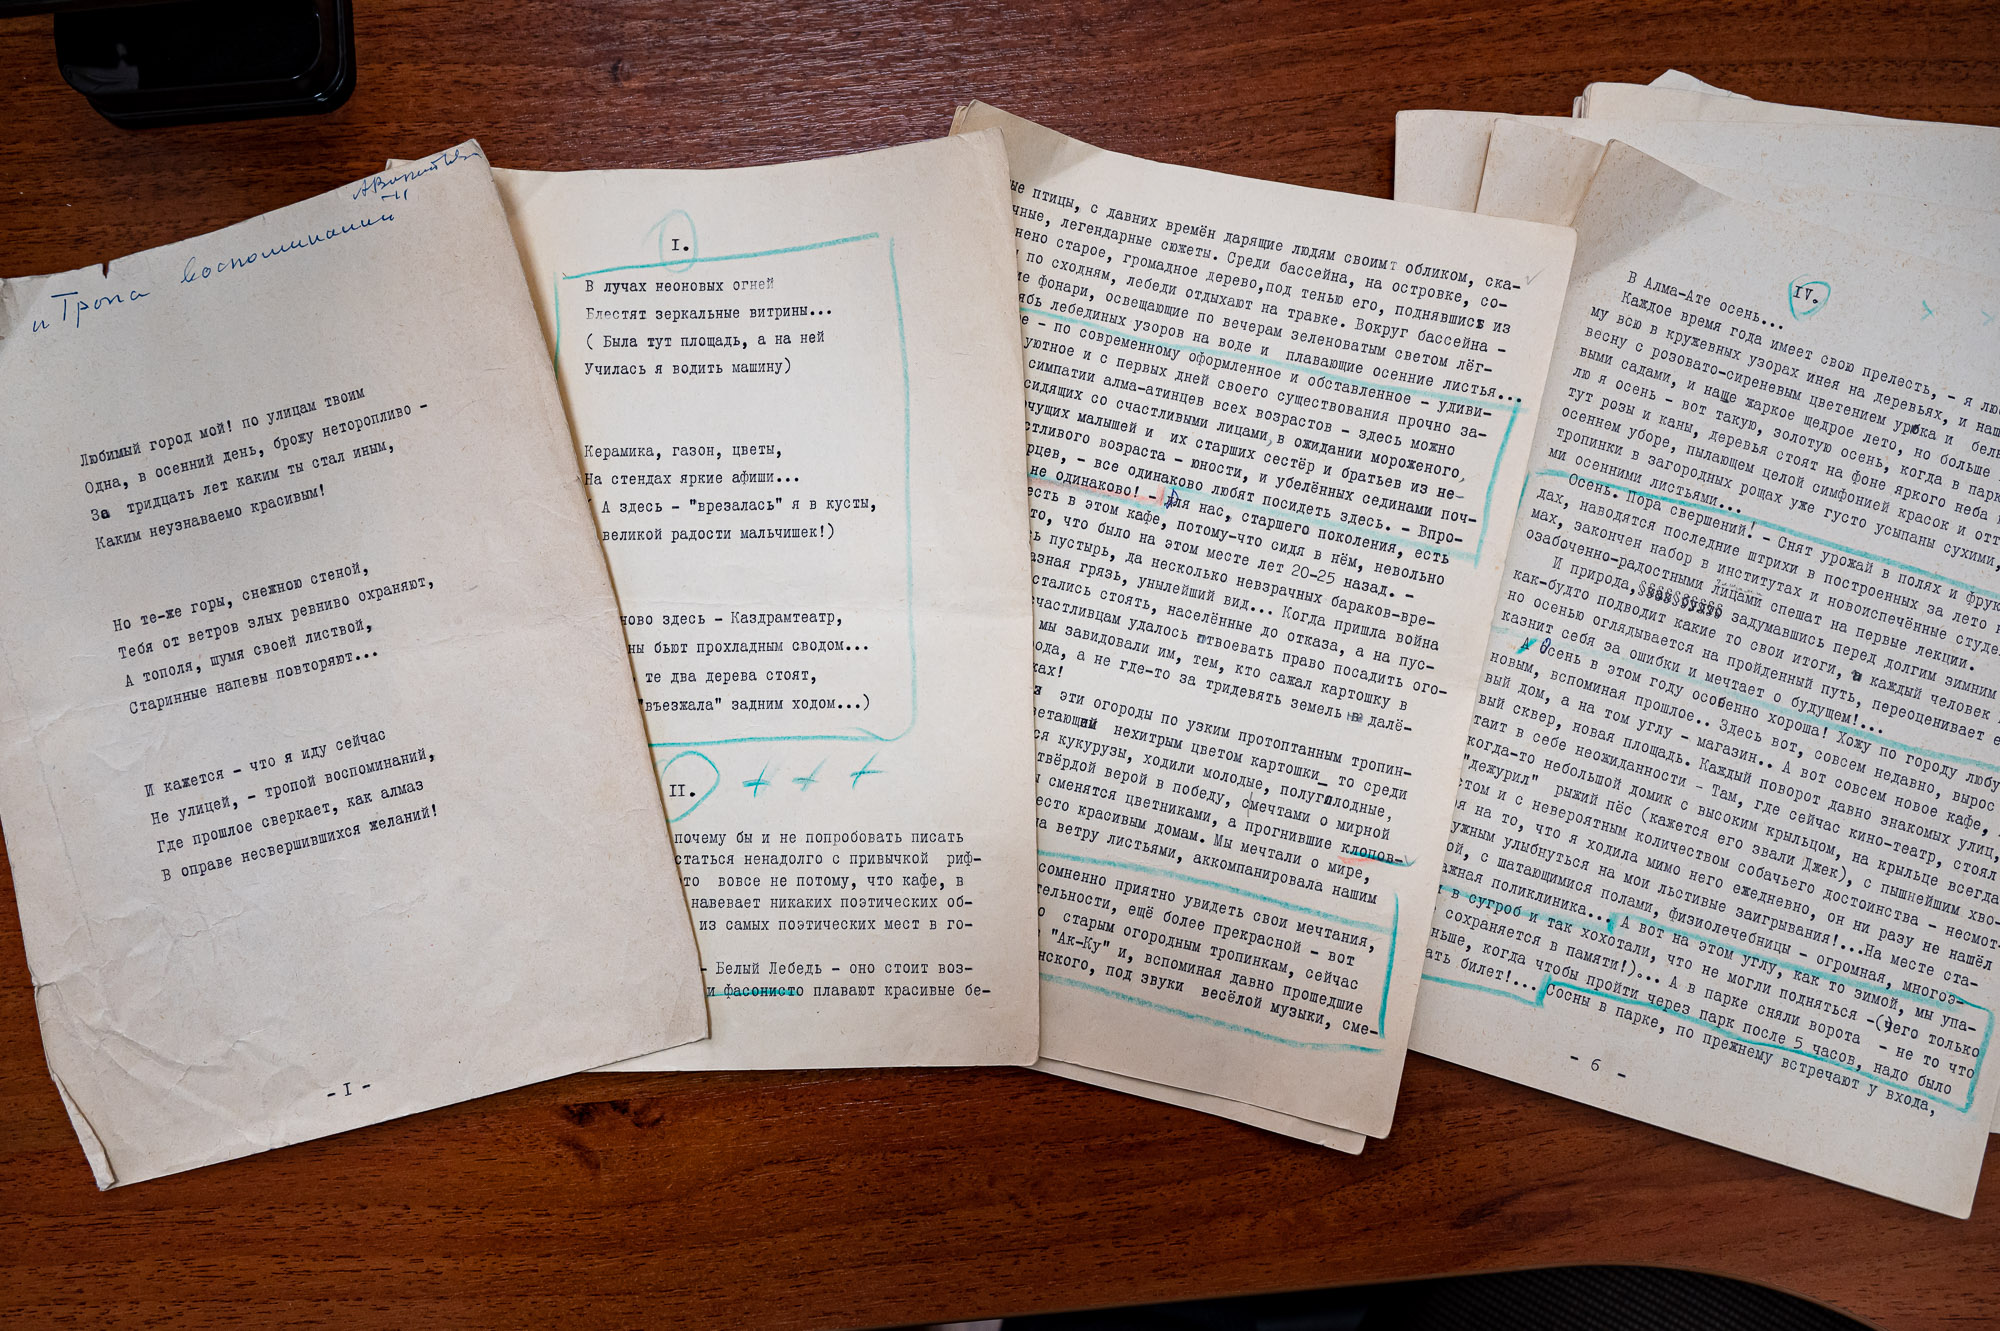 "Тропа воспоминаний"
Любимый город мой! по улицам твоим
Одна, в осенний день, брожу неторопливо -
За тридцать лет каким ты стал иным,
Каким неузнаваемо красивым!
Но те-же горы, снежною стеной,
Тебя от ветров злых ревниво охраняют,
А тополя, шумя своей листвой,
Старинные напевы повторяют...
И кажется - что я иду сейчас
Не улицей, - тропой воспоминаний,
Где прошлое сверкает, как алмаз
В оправе несвершившихся желаний!
- I -
I.
В лучах неоновых огней
Блестят зеркальные витрины...
( Была тут площадь, а на ней
Училась я водить машину)
Керамика, газон, цветы,
На стендах яркие афиши...
А здесь - "врезалась" я в кусты,
великой радости мальчишек!)
ново здесь - Каздрамтеатр,
ны бьют прохладным сводом...
те два дерева стоят,
"въезжала" задним ходом...)
II. + + +
почему бы и не попробовать писать
статься ненадолго с привычкой риф-
то вовсе не потому, что кафе, в
навевает никаких поэтических об-
из самых поэтических мест в го-
- Белый Лебедь - оно стоит воз-
и фасонисто плавают красивые бе-
ые птицы, с давних времён дарящие людям своим обликом, ска-
чные, легендарные сюжеты. Среди бассейна, на островке, со-
нено старое, громадное дерево,под тенью его, поднявшись из
по сходням, лебеди отдыхают на травке. Вокруг бассейна -
ие фонари, освещающие по вечерам зеленоватым светом лёг-
ябь лебединых узоров на воде и плавающие осенние листья...
е - по современному оформленное и обставленное - удиви-
уютное и с первых дней своего существования прочно за-
симпатии алма-атинцев всех возрастов - здесь можно
сидящих со счастливыми лицами, в ожидании мороженого,
очущих малышей и их старших сестёр и братьев из не-
стливого возраста - юности, и убелённых сединами поч-
рцев, - все одинаково любят посидеть здесь. - Впро-
не одинаково! - Для нас, старшего поколения, есть
есть в этом кафе, потому-что сидя в нём, невольно
то, что было на этом месте лет 20-25 назад. -
ь пустырь, да несколько невзрачных бараков-вре-
азная грязь, унылейший вид... Когда пришла война
стались стоять, населённые до отказа, а на пус-
счастливцам удалось отвоевать право посадить ого-
мы завидовали им, тем, кто сажал картошку в
ода, а не где-то за тридевять земель далё-
ках!
эти огороды по узким протоптанным тропин-
ветающий нехитрым цветом картошки то среди
ся кукурузы, ходили молодые, полуголодные,
твёрдой верой в победу, с мечтами о мирной
ы сменятся цветниками, а прогнившие клопов-
есто красивым домам. Мы мечтали о мире,
на ветру листьями, аккомпанировала нашим
сомненно приятно увидеть свои мечтания,
тельности, ещё более прекрасной - вот
о старым огородным тропинкам, сейчас
"Ак-Ку" и, вспоминая давно прошедшие
нского, под звуки весёлой музыки, сме-
IV.
В Алма-Ате осень...
Каждое время года имеет свою прелесть, - я люб
му всю в кружевных узорах инея на деревьях, и наш
весну с розовато-сиреневым цветением урюка и бел
выми садами, и наше жаркое щедрое лето, но больше
лю я осень - вот такую, золотую осень, когда в парк
тут розы и каны, деревья стоят на фоне яркого неба
осеннем уборе, пылающем целой симфонией красок и отт
тропинки в загородных рощах уже густо усыпаны сухими,
ми осенними листьями...
Осень. Пора свершений! - Снят урожай в полях и фрук
дах, наводятся последние штрихи в построенных за лето
мах, закончен набор в институтах и новоиспечённые студен
озабоченно-радостными лицами спешат на первые лекции.
И природа, задумавшись перед долгим зимним
как-будто подводит какие то свои итоги, и каждый человек
но осенью оглядывается на пройденный путь, переоценивает
казнит себя за ошибки и мечтает о будущем!...
А Осень в этом году особенно хороша! Хожу по городу любу
новым, вспоминая прошлое.. Здесь вот, совсем недавно, вырос
вый дом, а на том углу - магазин.. А вот совсем новое кафе,
вый сквер, новая площадь. Каждый поворот давно знакомых улиц,
таит в себе неожиданности - Там, где сейчас кино-театр, стоял
когда-то небольшой домик с высоким крыльцом, на крыльце всегда
"дежурил" рыжий пёс (кажется его звали Джек), с пышнейшим хво-
стом и с невероятным количеством собачьего достоинства - несмот-
я на то, что я ходила мимо него ежедневно, он ни разу не нашёл
ужным улыбнуться на мои льстивые заигрывания!...На месте ста-
ой, с шатающимися полами, физиолечебницы - огромная, многоэ-
ажная поликлиника... А вот на этом углу, как то зимой, мы упа-
и в сугроб и так хохотали, что не могли подняться -(чего только
сохраняется в памяти!)... А в парке сняли ворота - не то что
ньше, когда чтобы пройти через парк после 5 часов, надо было
ать билет!... Сосны в парке, по прежнему встречают у входа,
- 6 -